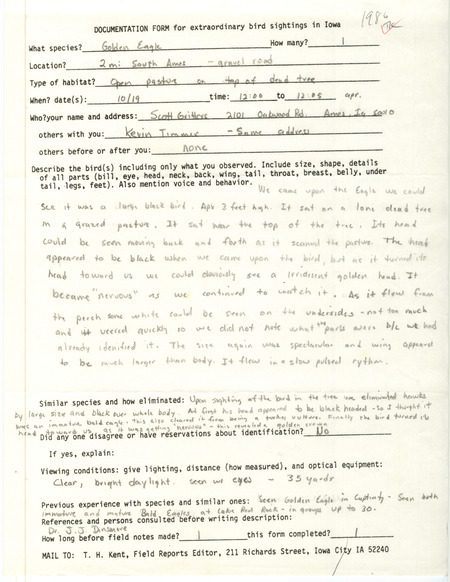 1986
DOCUMENTATION FORM for extraordinary bird sightings in Iowa
What species? Golden Eagle How many? 1
Location? 2 mi South Ames - gravel road
Type of habitat? Open pasture on top of dead tree
When? date(s): 10/19 time: 12:00 to 12:05 apr.
Who? your name and address: Scott 2101 Oakwood Rd. Ames, Ia 50010
others with you: Kevin Timmer - Same address
others before or after you: none
Describe the bird(s) including only what you observed. Include size, shape, details
of all parts (bill, eye, head, neck, back, wing, tail, throat, breast, belly, under
tail, legs, feet). Also mention voice and behavior. We came upon the Eagle we could
see it was a large black bird. Apx 3 feet high. It sat on a lone dead tree
in a grazed pasture. It sat near the top of the tree. Its head
could be seen moving back and forth as it scanned the pasture. The head
appeared to be black when we came upon the bird, but as it turned its
head toward us we could obviously see a irridescent golden head. It
became "nervous" as we continued to watch it. As it flew from
the perch some white could be seen on the undersides - not too much
and it veered quickly so we did not note what the parts were b/c we had
already identified it. The size again was spectacular and wing appeared
to be much larger than body. It flew in a slow pulsed rythm.
Similar species and how eliminated: Upon sighting of the bird in the tree we eliminated hawks
by large size and black over whole body. At first his head appeared to be black headed - so I thought it
was an immature bald eagle. This also cleared it from being a turkey vulture. Finally the bird turned its
head towards us as it was getting "nervous" - this revealed a golden crown
Did any one disagree or have reservations about identification? No
If yes, explain:
Viewing conditions: give lighting, distance (how measured), and optical equipment:
Clear, bright daylight. seen w/ eyes - 35 yards
Previous experience with species and similar ones: Seen Golden Eagle in Captivity - Seen both
immature and mature Bald Eagles at Lake Red Rock - in groups up to 30.
References and persons consulted before writing description:
Dr. J.J. Dinsmore
How long before field notes made? 1 this form completed? 1
MAIL TO: T. H. Kent, Field Reports Editor, 211 Richards Street, Iowa City IA 52240